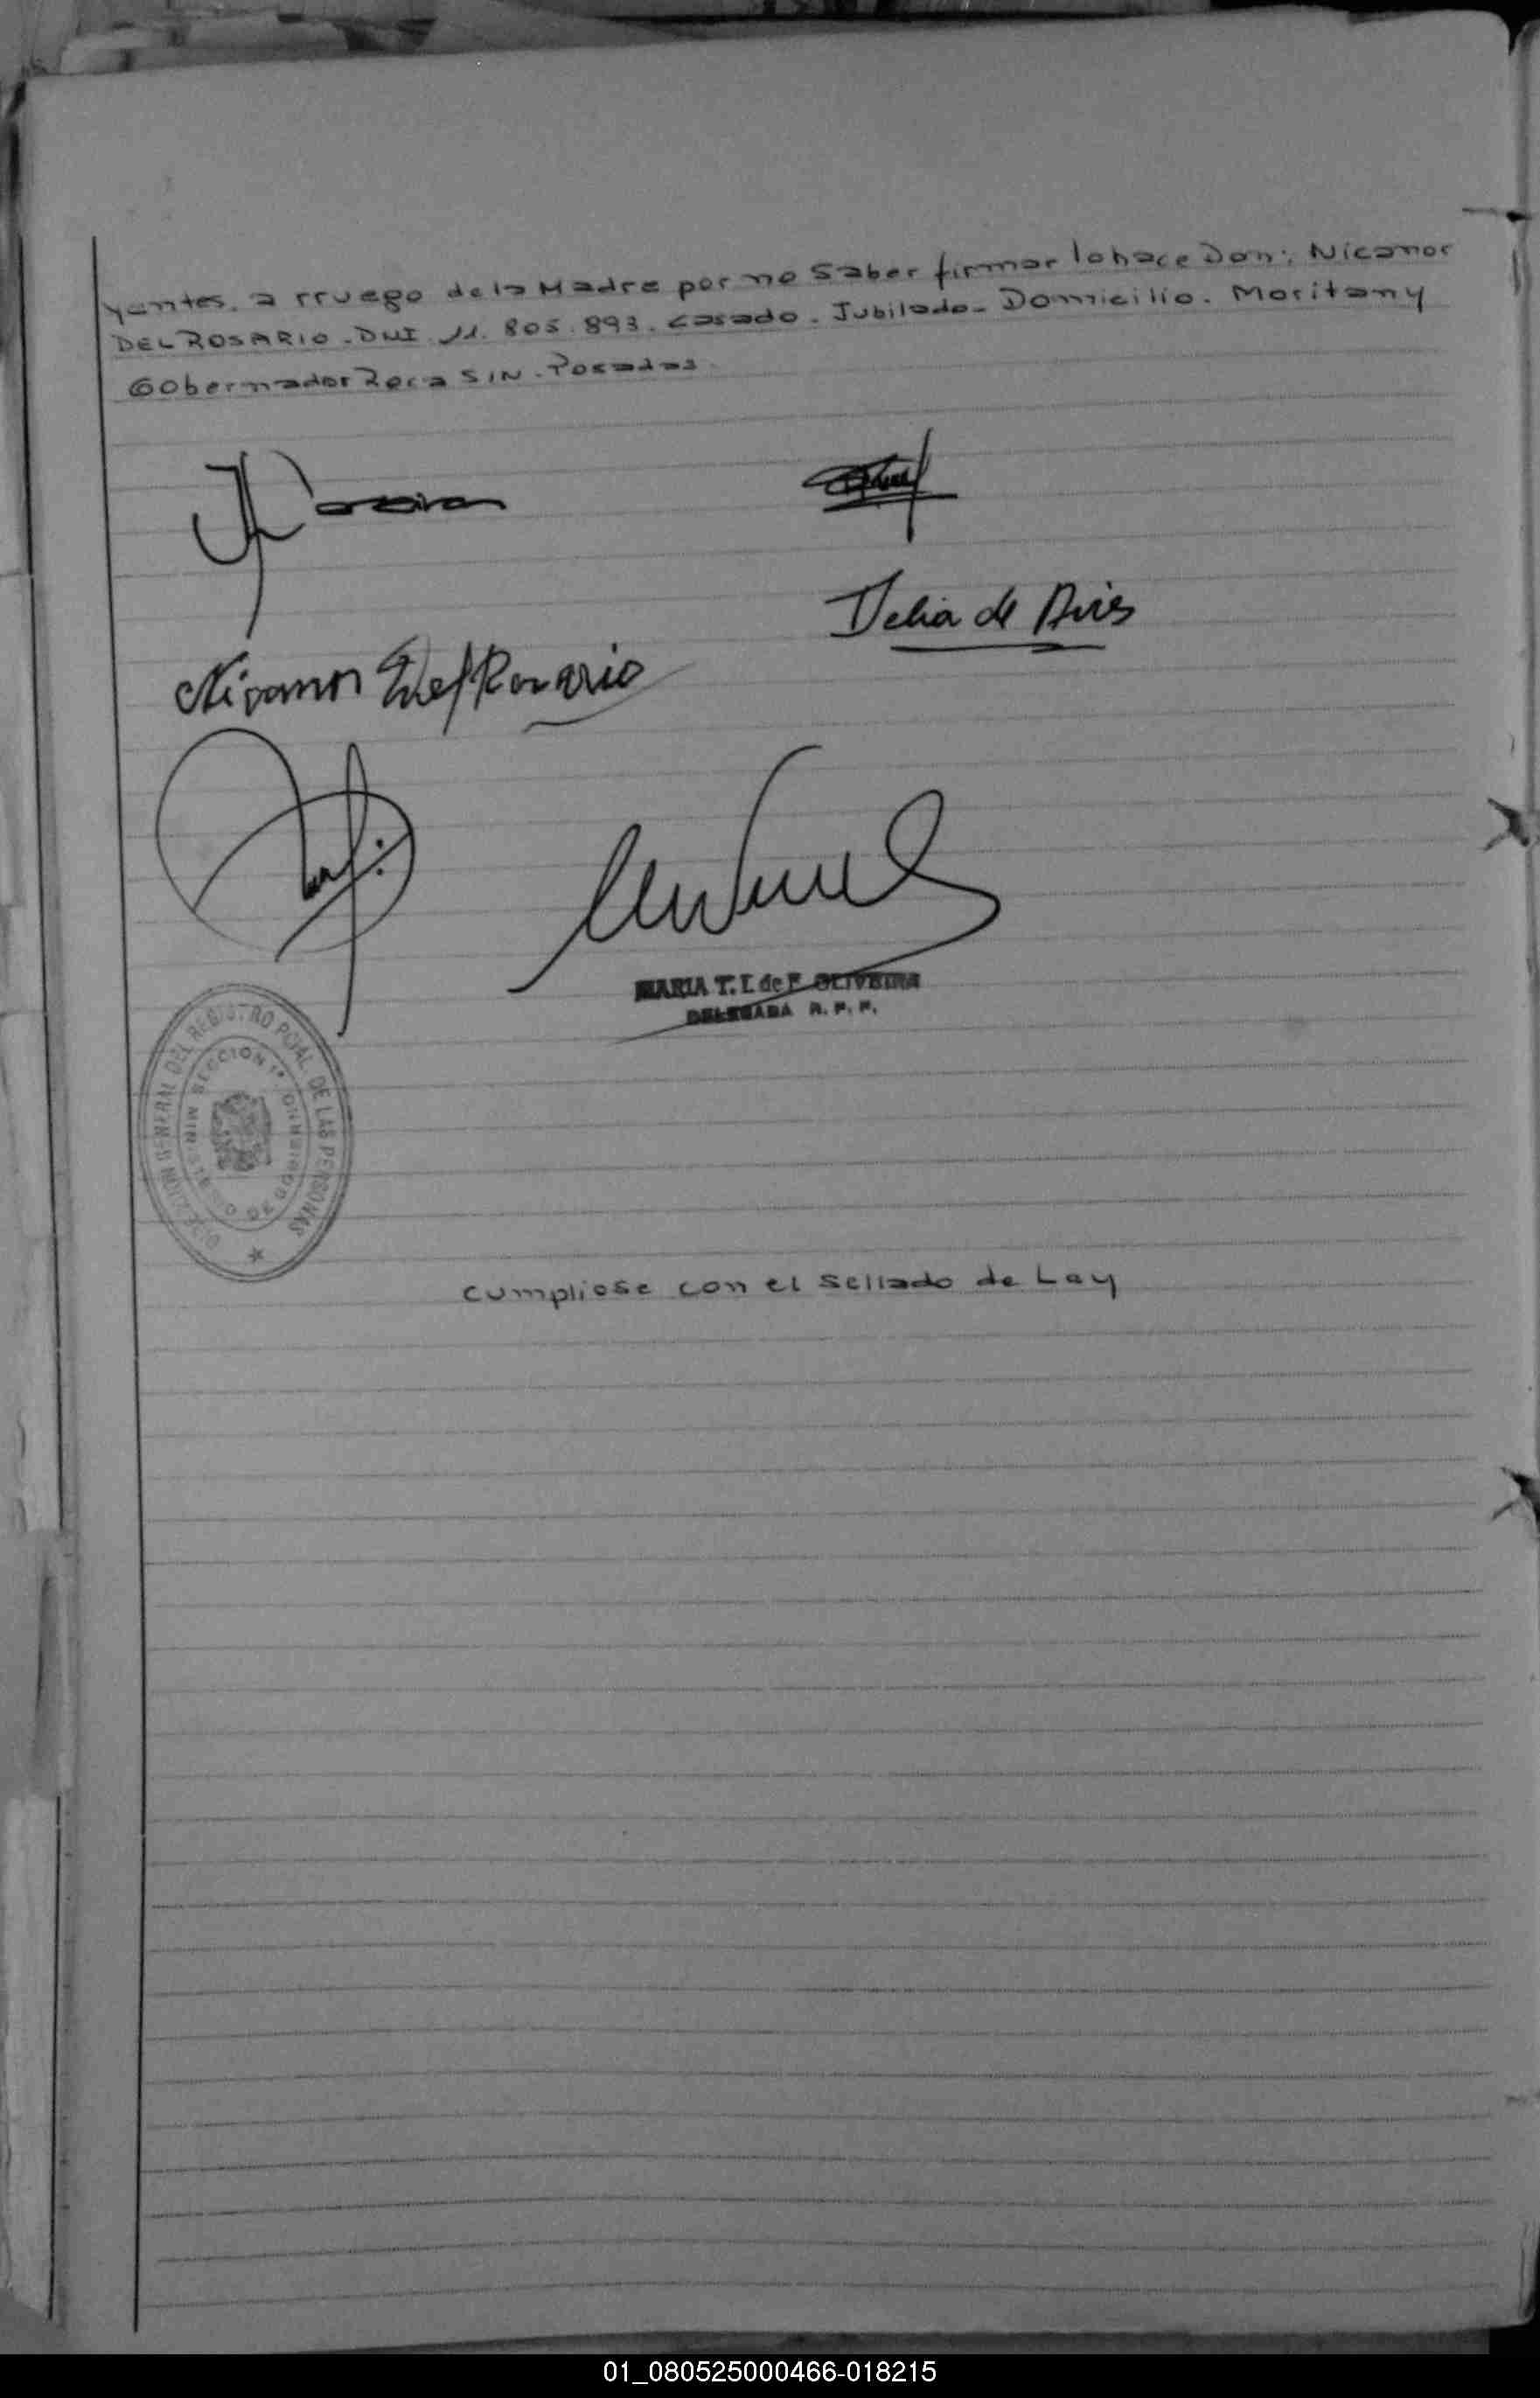 yentes. a rruego de la Madre por no Saber firmar lo hace Don: Nicanor
DEL ROSARIO. DNI 11. 805. 893. casado. Jubilado. Domicilio. Moritan y
Gobernador Roca S/N. Posadas.
Nicanor Del Rosario
Delia de
MARIA T. I. de F. OLIVEIRA
DELEGADA R. P. P.
DIRECCION GENERAL DEL REGISTRO PCIAL. DE LAS PERSONAS
MINISTERIO DE GOBIERNO
SECCION 1ª
cumpliose con el sellado de Ley
01_080525000466-018215